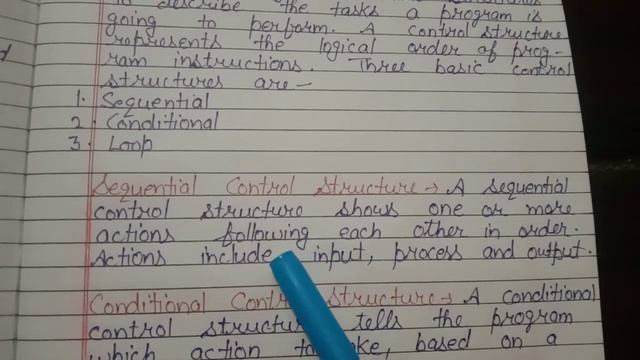 to describe the tasks a program is
going to perform. A control structure
represents the logical order of prog-
ram instructions. Three basic control
structures are-
1. Sequential
2. Conditional
3. Loop
Sequential Control Structure → A sequential
control structure shows one or more
actions following each other in order.
Actions include input, process and output.
Conditional Structure → A conditional
control tells the program
which action to based on a